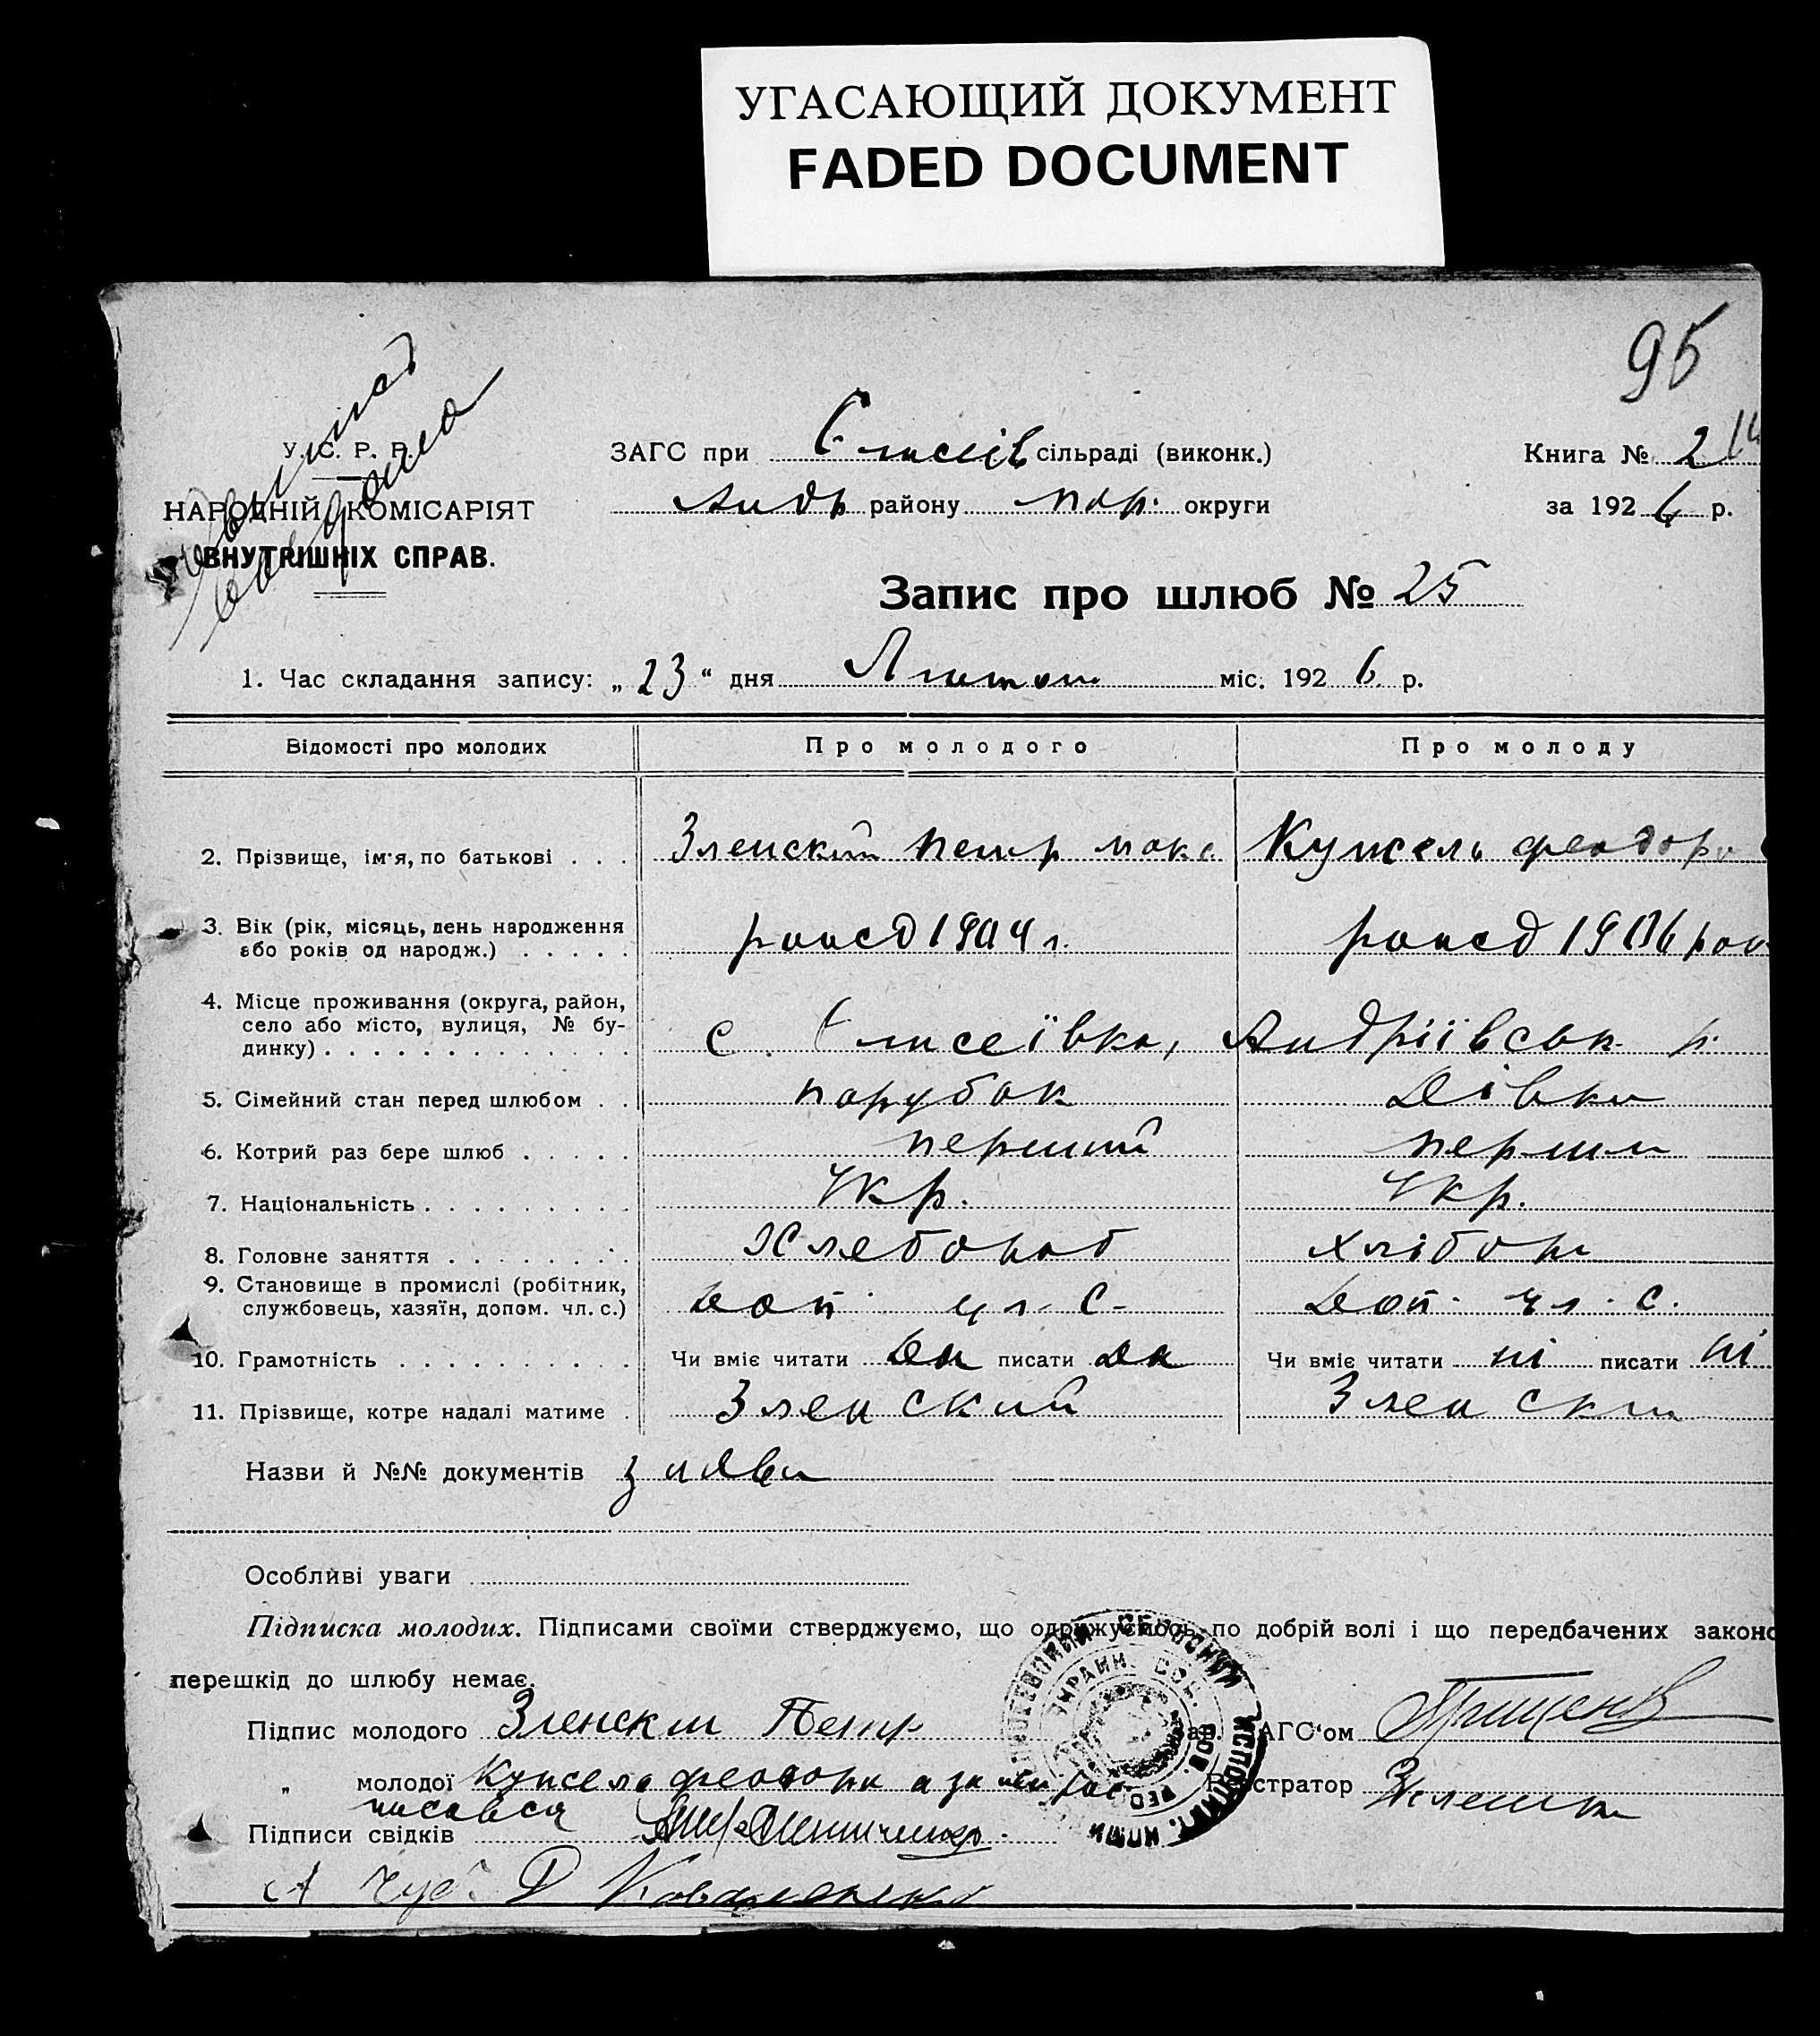 УГАСАЮЩИЙ ДОКУМЕНТ
FADED DOCUMENT
95
У. С. Р. Р.
НАРОДНІЙ КОМІСАРІЯТ
ВНУТРІШНІХ СПРАВ.
ЗАГС при Єлисеїв сільраді (виконк.)
Андр району округи
Книга № 2
за 1926 р.
Запис про шлюб № 25
1. Час складання запису: „23“ дня Лютого міс. 1926 р.
Відомості про молодих Про молодого Про молоду
2. Прізвище, ім'я, по батькові . . . Зленский Петр Макс Кужель Феодора
3. Вік (рік, місяць, день народження
або років од народж.) . . . . . рожд 1904 г. рожд 1906 рок
4. Місце проживання (округа, район,
село або місто, вулиця, № бу-
динку) . . . . . . . . . . . . . с. Єлисеївка, Андріївськ р.
5. Сімейний стан перед шлюбом . . парубок Дівка
6. Котрий раз бере шлюб . . . . . перший перши
7. Національність . . . . . . . . . Укр. Укр.
8. Головне заняття . . . . . . . . Хлебороб хлібор
9. Становище в промислі (робітник,
службовець, хазяїн, допом. чл. с.) Доп. чл. с. Доп. чл. с.
10. Грамотність . . . . . . . . . . Чи вміє читати Да писати да Чи вміє читати ні писати ні
11. Прізвище, котре надалі матиме . Зленский Зленски
Назви й №№ документів заяви
Особливі уваги
Підписка молодих. Підписами своїми стверджуємо, що одружуємось по добрій волі і що передбачених законо
перешкід до шлюбу немає.
Підпис молодого Зленски Петр Зав. ЗАГС'ом
„ молодої Кужель Феодора а за неи рос Реєстратор
писався
Підписи свідків
Д Коваленко